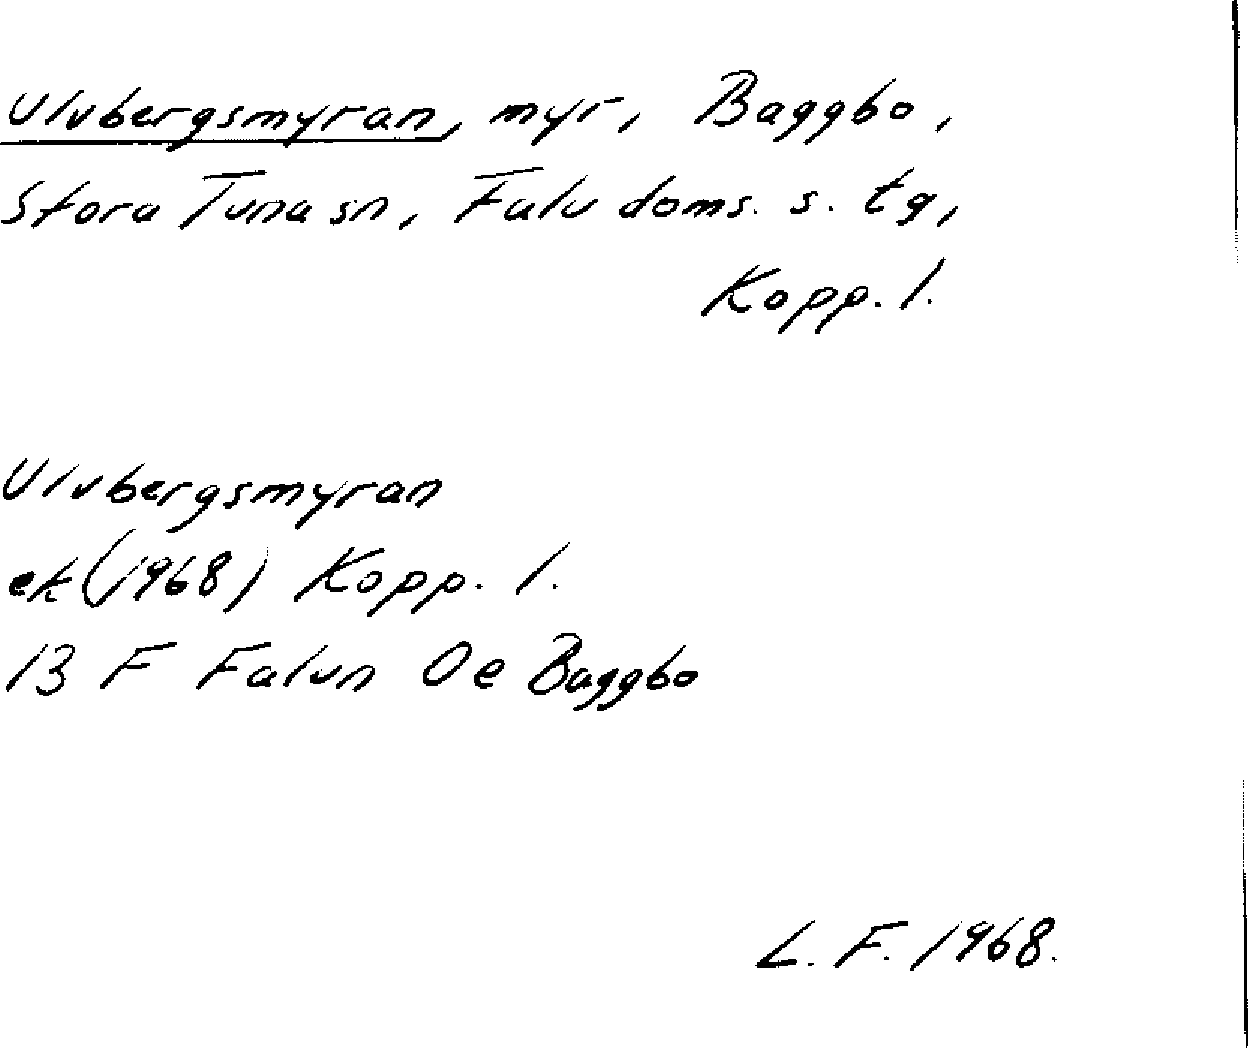 Ulvbergsmyran, myr, Baggbo,
Stora Tuna sn, Falu doms. s. tg,
Kopp. l.
Ulvbergsmyran
ek (1968) Kopp. l.
13 F Falun 0e Baggbo
L. F. 1968.